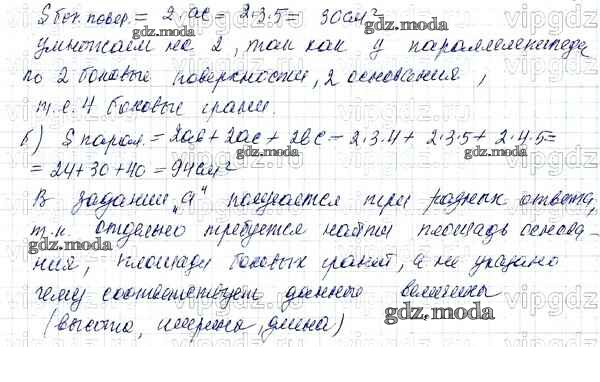 S бок. повер. = 2ac = 2·3·5 = 30см²
Умножаем на 2, так как у параллелепипеда
по 2 боковые поверхности, 2 основания,
т.е. 4 боковые грани.
б) S парал. = 2ab + 2ac + 2bc = 2·3·4 + 2·3·5 + 2·4·5 =
= 24 + 30 + 40 = 94см²
В задании „а“ получается три разных ответа,
т.к. отдельно требуется найти площадь основа-
ния, площади боковых граней, а не указано
чему соответствует данные величины
(высота, ширина, длина)
gdz.moda
vipgdz